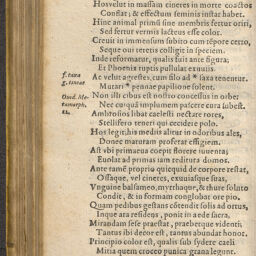 Hosvelut in massam cineres in morte coactos
Conflat; & effectum seminis instar habet.
Hinc animal primū sine membris fertur oriri,
Sed fertur vermis lacteus esse color.
Creuit in immensum subito cum tēpore certo,
Seque oui teretis colligit in speciem.
Inde reformatur, qualis fuit ante figura;
Et Phoenix ruptis pullulat exuuiis.
f. tinea
g. tineae
Ac velut agrestes, cum filo ad * saxa tenentur.
Mutari pennae papilione solent.
Ouid. Me-
tamorph.
Non illi cibus est nostro concessus in orbe:
Nec cuiquā implumem pascere cura subest.
Ambrosios libat caelesti nectare rores,
Stellifero teneri qui cecidere polo.
Hos legit: his mediis alitur in odoribus ales,
Donec maturam proferat effigiem.
Ast vbi primaeua coepit florere iuuenta;
Euolat ad primas iam reditura domos.
Ante tamē proprio quicquid de corpore restat,
Ossaque, vel cineres, exuuiasque suas,
Vnguine balsameo, myrrhaque, & thure soluto
Condit, & in formam conglobat ore pio.
Quam pedibus gestans cōtendit solis ad ortus,
Inque ara residens, ponit in aede sacra.
Mirandam sese praestat, praebetque videnti;
Tantus ibi decor est, tantus abundat honor.
Principio color est, qualis sub sydere caeli
Mitia quem croceo punica grana legunt.